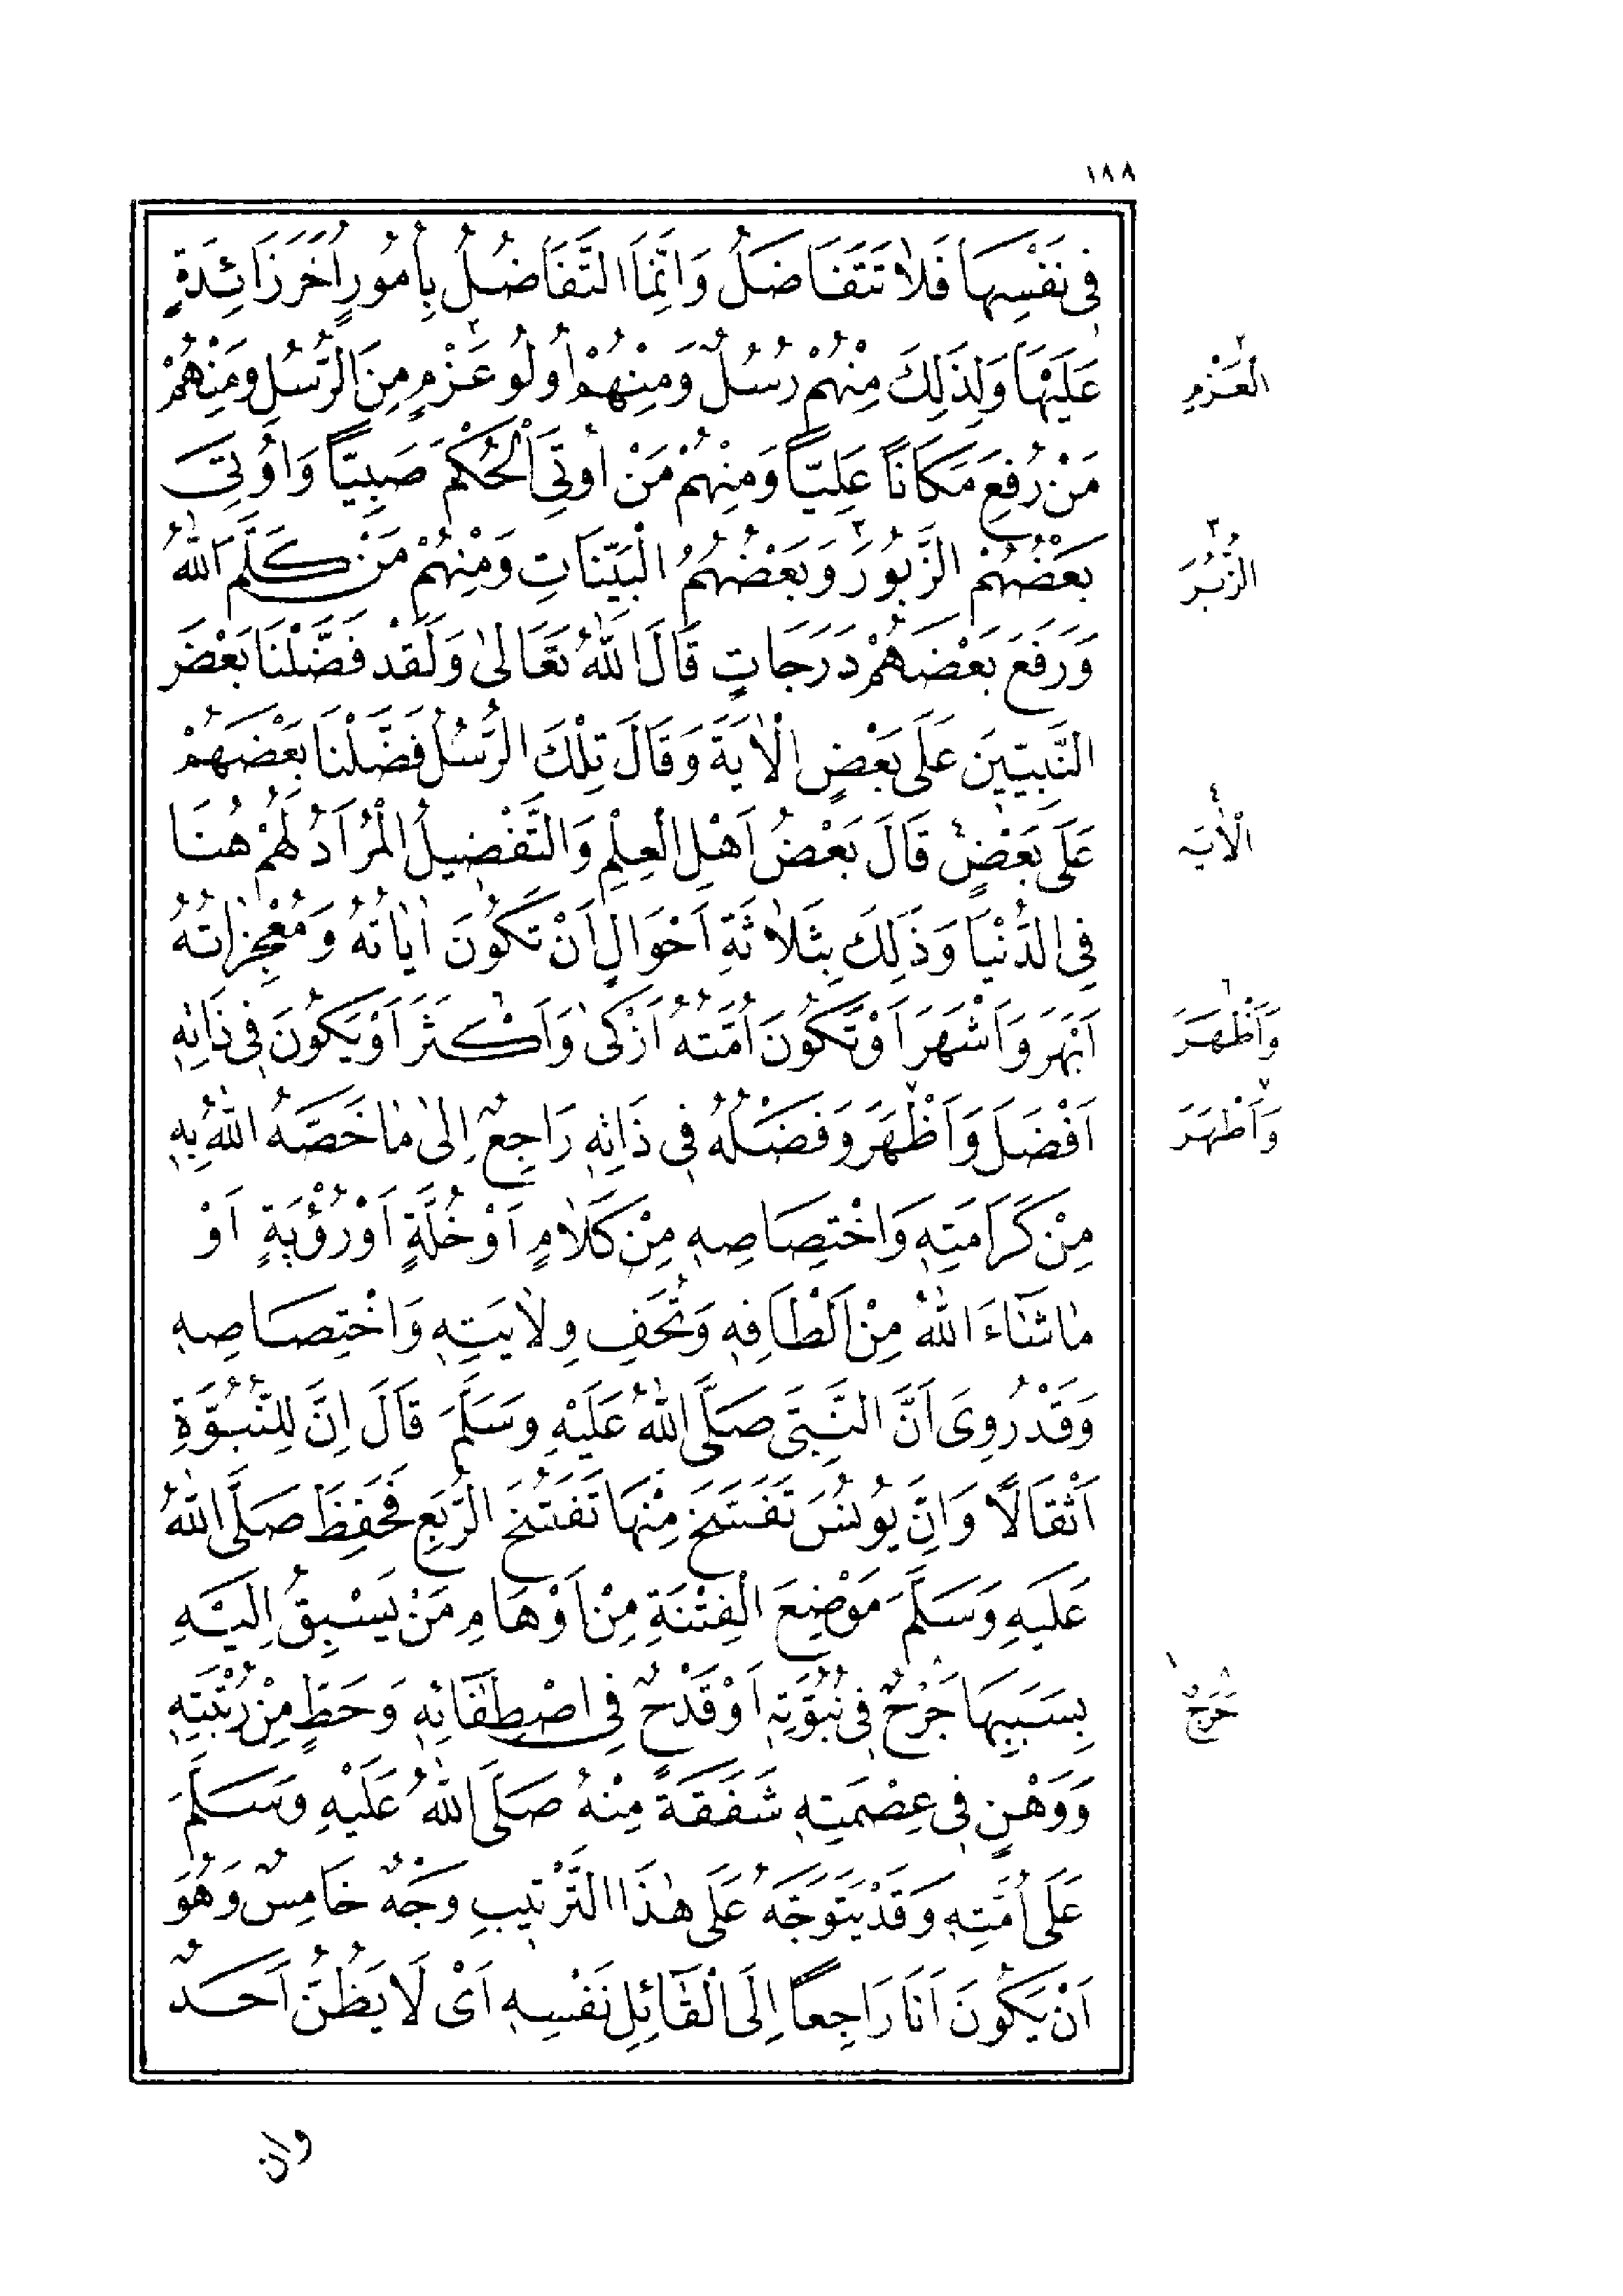 ١٨٨
فِى نَفْسِهَا فَلَا تَتَفَاضَلُ وَاِنَّمَا التَّفَاضُلُ بِأُمُورٍ اُخَرَ زَائِدَةٍ
عَلَيْهَا وَلِذَلِكَ مِنْهُمْ رُسُلٌ وَمِنْهُمْ اُولُو عَزْمٍ٢ مِنَ الرُّسُلِ وَمِنْهُمْ
الْعَزْمِ٢
مَنْ رُفِعَ مَكَانًا عَلِيًّا وَمِنْهُمْ مَنْ اُوتِىَ الْحُكْمَ صَبِيًّا وَاُوتِىَ
بَعْضُهُمْ الزَّبُورَ٣ وَبَعْضُهُمُ الْبَيِّنَاتِ وَمِنْهُمْ مَنْ كَلَّمَ اللّٰهُ
الزُّبُرَ٣
وَرَفَعَ بَعْضَهُمْ دَرَجَاتٍ قَالَ اللّٰهُ تَعَالٰى وَلَقَدْ فَضَّلْنَا بَعْضَ
النَّبِيّٖينَ عَلَى بَعْضٍ اَلْاٰيَةَ وَقَالَ تِلْكَ الرُّسُلُ فَضَّلْنَا بَعْضَهُمْ
عَلَى بَعْضٍ٤ قَالَ بَعْضُ اَهْلِ الْعِلْمِ وَالتَّفْضِيلُ الْمُرَادُ لَهُمْ هُنَا
اَلْاٰيَه٤
فِى الدُّنْيَا وَذَلِكَ بِثَلَاثَةِ اَحْوَالٍ اَنْ تَكُونَ اٰيَاتُهُ وَمُعْجِزَاتُهُ
اَبْهَرَ وَاَشْهَرَ اَوْ تَكُونَ اُمَّتُهُ اَزْكٰى وَاَكْثَرَ٦ اَوْ يَكُونَ فِى ذَاتِهٖ
وَاَظْهَرَ٦
اَفْضَلَ وَاَظْهَرَ٧ وَفَضْلُهُ فِى ذَاتِهٖ رَاجِعٌ اِلٰى مٰا خَصَّهُ اللّٰهُ بِهٖ
وَاَطْهَرَ٧
مِنْ كَرَامَتِهٖ وَاخْتِصَاصِهٖ مِنْ كَلَامٍ اَوْ خُلَّةٍ اَوْ رُؤْيَةٍ اَوْ
مٰا شَآءَ اللّٰهُ مِنْ اَلْطَافِهٖ وَتُحَفِ وِلَايَتِهٖ وَاخْتِصَاصِهٖ
وَقَدْ رُوِىَ اَنَّ النَّبِىَّ صَلَّى اللّٰهُ عَلَيْهِ وَسَلَّمَ قَالَ اِنَّ لِلنُّبُوَّةِ
اَثْقَالًا وَاِنَّ يُونُسَ تَفَسَّخَ مِنْهَا تَفَسُّخَ الرُّبَعِ فَحَفِظَ صَلَّى اللّٰهُ
عَلَيْهِ وَسَلَّمَ مَوْضِعَ الْفِتْنَةِ مِنْ اَوْهَامِ مَنْ يَسْبِقُ اِلَيْهِ
بِسَبَبِهَا جَرْحٌ٨ فِى نُبُوَّتِهٖ اَوْ قَدْحٌ فِى اصْطِفَائِهٖ وَحَطٍّ مِنْ رُتْبَتِهٖ
حَرَجٌ٨ ١
وَوَهْنٍ فِى عِصْمَتِهٖ شَفَقَةً مِنْهُ صَلَّى اللّٰهُ عَلَيْهِ وَسَلَّمَ
عَلَى اُمَّتِهٖ وَقَدْ يَتَوَجَّهُ عَلَى هٰذَا التَّرْتِيبِ وَجْهٌ خَامِسٌ وَهُوَ
اَنْ يَكُونَ اَنَا رَاجِعاً اِلَى الْقَآئِلِ نَفْسِهٖ اَىْ لَا يَظُنُّ اَحَدٌ
وان